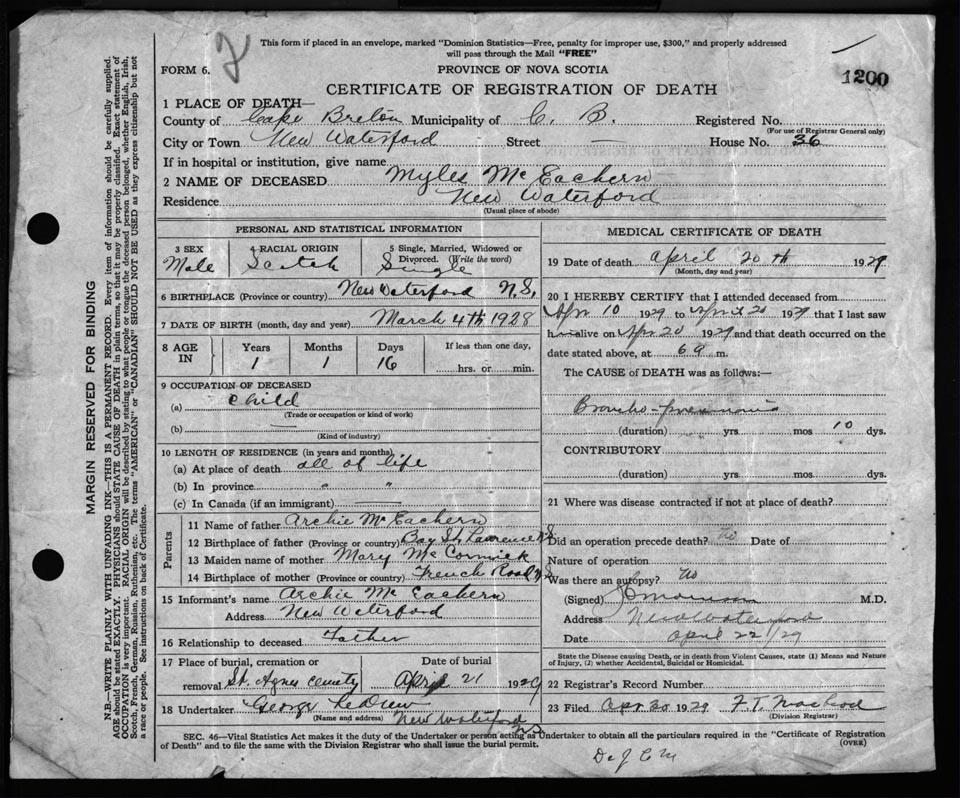 This form if placed in an envelope, marked "Dominion Statistics—Free, penalty for improper use, $300," and properly addressed
will pass through the Mail "FREE"
FORM 6.
PROVINCE OF NOVA SCOTIA
1200
CERTIFICATE OF REGISTRATION OF DEATH
1 PLACE OF DEATH—
County of Cape Breton Municipality of C. B. Registered No.
(For use of Registrar General only)
City or Town New Waterford Street — House No. 36
If in hospital or institution, give name
2 NAME OF DECEASED Myles McEachern
Residence New Waterford
(Usual place of abode)
PERSONAL AND STATISTICAL INFORMATION
3 SEX Male
4 RACIAL ORIGIN Scotch
5 Single, Married, Widowed or Divorced. (Write the word) Single
6 BIRTHPLACE (Province or country) New Waterford N.S.
7 DATE OF BIRTH (month, day and year) March 4th 1928
8 AGE IN
Years Months Days If less than one day,
1 1 16 hrs. or min.
9 OCCUPATION OF DECEASED
(a) Child
(Trade or occupation or kind of work)
(b) —
(Kind of industry)
10 LENGTH OF RESIDENCE (in years and months)
(a) At place of death all of life
(b) In province " "
(c) In Canada (if an immigrant) —
Parents
11 Name of father Archie McEachern
12 Birthplace of father (Province or country) Bay St. Lawrence N.S.
13 Maiden name of mother Mary McCormick
14 Birthplace of mother (Province or country) French Road N.S.
15 Informant's name Archie McEachern
Address New Waterford
16 Relationship to deceased Father
17 Place of burial, cremation or removal St. Agnes cemity
Date of burial April 21 1929
18 Undertaker George LeDrew
(Name and address) New Waterford N.S.
MEDICAL CERTIFICATE OF DEATH
19 Date of death April 20th 1929
(Month, day and year)
20 I HEREBY CERTIFY that I attended deceased from
Apr 10 1929 to April 20 1929 that I last saw
him alive on Apr 20 1929 and that death occurred on the
date stated above, at 6 a m.
The CAUSE of DEATH was as follows:—
Broncho-pneumonia
(duration) yrs. mos 10 dys.
CONTRIBUTORY
(duration) yrs. mos. dys.
21 Where was disease contracted if not at place of death?
Did an operation precede death? No Date of
Nature of operation
Was there an autopsy? No
(Signed) M.D.
Address New Waterford
Date April 22/29
State the Disease causing Death, or in death from Violent Causes, state (1) Means and Nature
of Injury, (2) whether Accidental, Suicidal or Homicidal.
22 Registrar's Record Number
23 Filed Apr 30 1929 F. T. MacLeod
(Division Registrar)
SEC. 46—Vital Statistics Act makes it the duty of the Undertaker or person acting as Undertaker to obtain all the particulars required in the "Certificate of Registration
of Death" and to file the same with the Division Registrar who shall issue the burial permit.
(OVER)
MARGIN RESERVED FOR BINDING
N.B.—WRITE PLAINLY WITH UNFADING INK—THIS IS A PERMANENT RECORD. Every item of information should be carefully supplied.
AGE should be stated EXACTLY. PHYSICIANS should STATE CAUSE OF DEATH in plain terms, so that it may be properly classified. Exact statement of
OCCUPATION is very important. RACIAL ORIGIN will be described by stating to what people or tongue the deceased person belonged, whether English, Irish,
Scotch, French, German, Russian, Ruthenian, etc. The terms "AMERICAN" or "CANADIAN" SHOULD NOT BE USED as they express citizenship but not
a race or people. See instructions on back of Certificate.